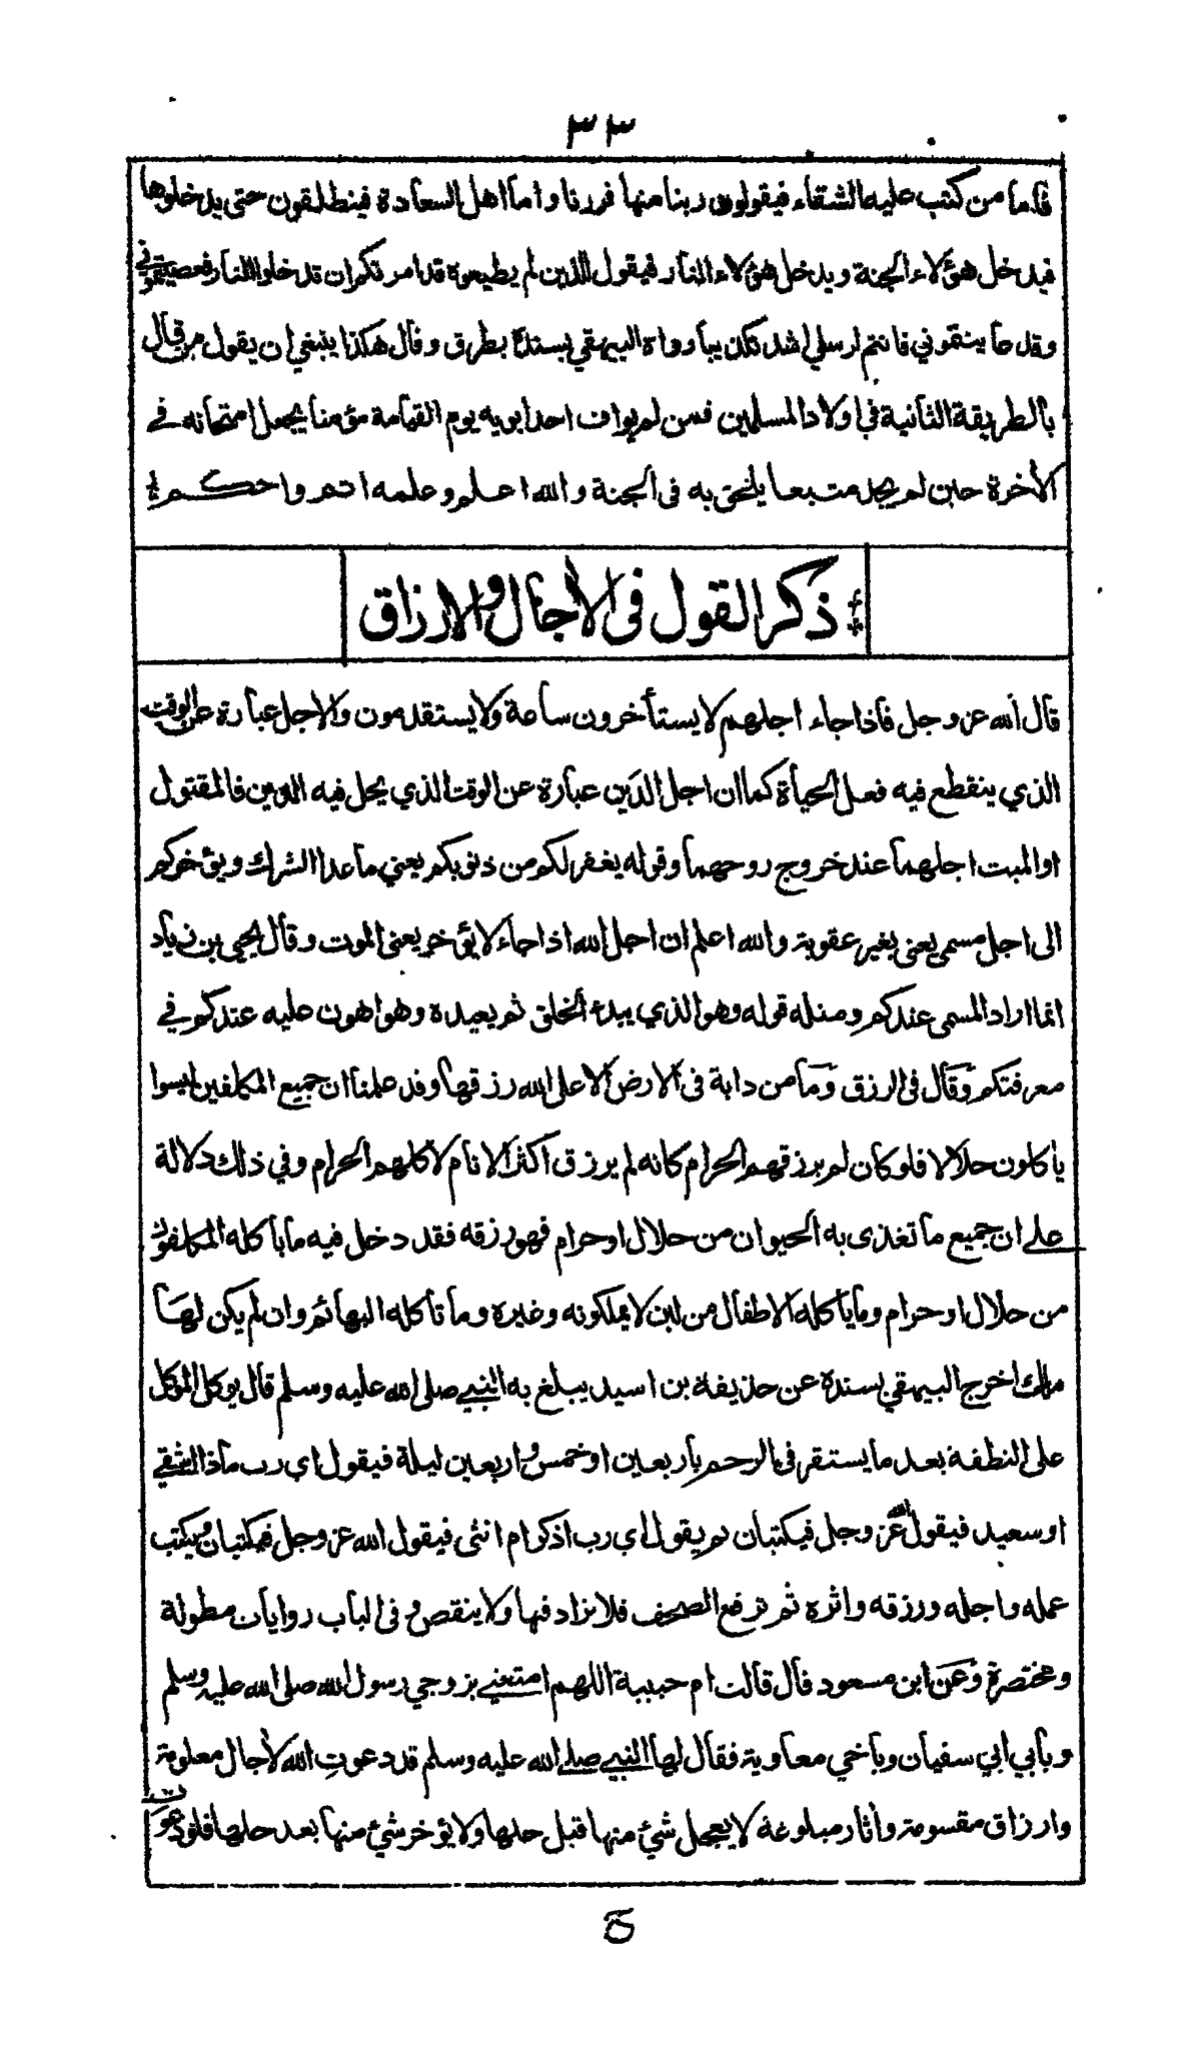 ٣٣
فاما من كتب عليه الشقاء فيقولون ربنا منها فررنا واما اهل السعادة فينطلقون حتى يدخلوها
فيدخل هؤلاء الجنة ويدخل هؤلاء النار فيقول للذين لم يطيعوه قد امرتكم ان تدخلوا النار فعصيتموني
وقد عاينتموني فانتم لرسلي اشد تكذيبا رواه البيهقي بسنده بطرق وقال هكذا ينبغي ان يقول من قال
بالطريقة الثانية في اولاد المسلمين فمن لم يواف احد ابويه يوم القيامة مؤمنا يجعل امتحانه في
الأخرة حين لم يجد متبعا يلتحق به في الجنة والله اعلم وعلمه اتم واحكم
ذكر القول في الأجال والارزاق
قال الله عز وجل فاذا جاء اجلهم لا يستأخرون ساعة ولا يستقدمون والاجل عبارة عن الوقت
الذي ينقطع فيه فعل الحياة كما ان اجل الدين عبارة عن الوقت الذي يحل فيه الدين فالمقتول
او الميت اجلهما عند خروج روحهما وقوله يغفر لكم من ذنوبكم يعني ما عدا الشرك ويؤخركم
الى اجل مسمى يعني بغير عقوبة والله اعلم ان اجل الله اذا جاء لا يؤخر يعني الموت وقال يحيى بن زياد
انما اراد المسمى عندكم ومثله قوله وهو الذي يبدء الخلق ثم يعيده وهو اهون عليه عندكم في
معرفتكم وقال في الرزق وما من دابة في الارض الا على الله رزقها وقد علمنا ان جميع المكلفين ليسوا
ياكلون حلالا فلو كان لم يرزقهم الحرام كانه لم يرزق اكثر الانام لاكلهم الحرام وفي ذلك دلالة
على ان جميع ما تغذى به الحيوان من حلال او حرام فهو رزقه فقد دخل فيه ما يأكله المكلفون
من حلال او حرام وما يأكله الاطفال من لبن لا يملكونه وغيره وما تأكله البهائم وان لم يكن لها
مالك اخرج البيهقي بسنده عن حذيفة بن اسيد يبلغ به النبي صلى الله عليه وسلم قال يوكل الموكل
على النطفة بعد ما يستقر في الرحم بأربعين او خمس واربعين ليلة فيقول اي رب ماذا اشقي
او سعيد فيقول الله عز وجل فيكتبان ثم يقول اي رب اذكر ام انثى فيقول الله عز وجل فيكتبان ويكتب
عمله واجله ورزقه واثره ثم ترفع الصحف فلا يزاد فيها ولا ينقص و في الباب روايات مطولة
ومختصرة وعن ابن مسعود قال قالت ام حبيبة اللهم امتعني بزوجي رسول الله صلى الله عليه وسلم
وبأبي ابي سفيان وبأخي معاوية فقال لها النبي صلى الله عليه وسلم قد دعوت الله لأجال معلومة
وارزاق مقسومة وأثار مبلوغة لا يعجل شئ منها قبل حلها ولا يؤخر شئ منها بعد حلها فلو دعوت